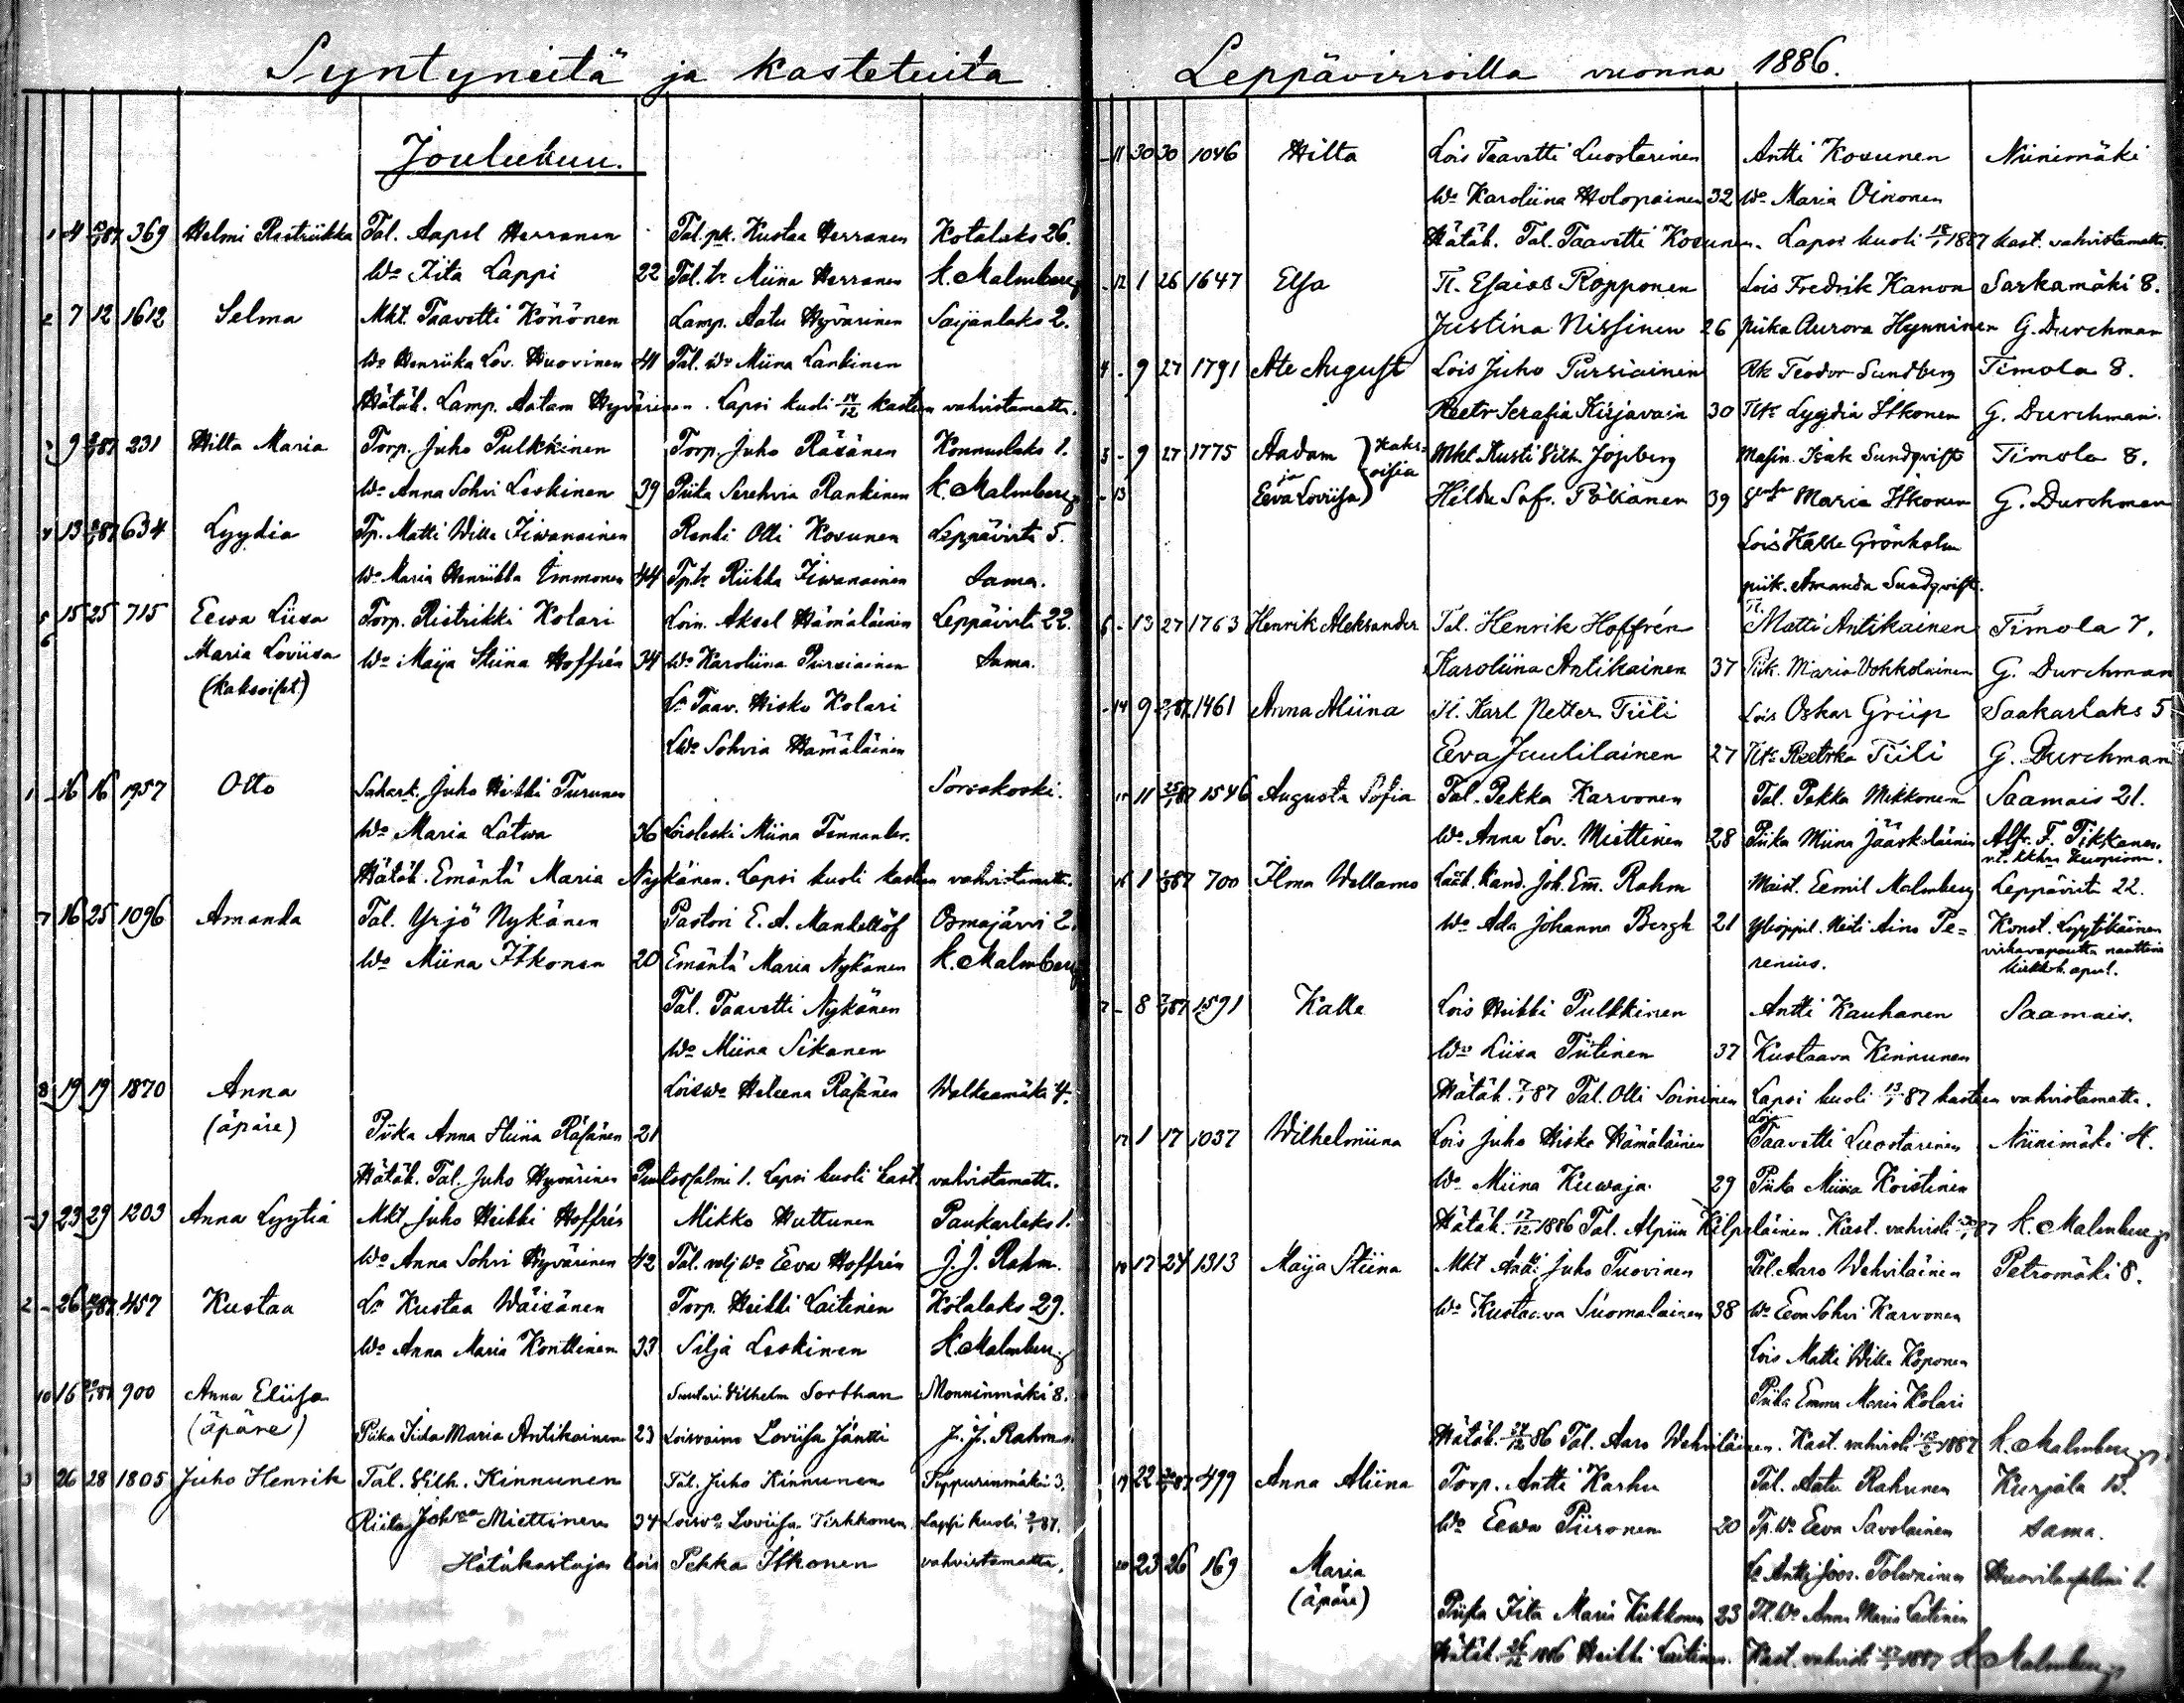 Syntyneitä ja kastetuita
Joulukuun.
1 4 87 369 Helmi Restriikka Tal. Aapel Herranen Tal. pk. Kustaa Herranen Kotalaks 26.
Wo Iita Lappi 22 Tal. tr. Miina Herranen K. Malmberg
2 7 12 1612 Selma Mkt. Taavetti Könönen Lamp. Aatu Hyvärinen Saijanlaks 2.
Wo Henriika Lov. Huovinen 41 Tal. Wo Miina Lankinen
Hätäk. Lamp. Aatam Hyvärinen. Lapsi kuoli 14/12 kasteen vahvistamatta.
9 87 231 Hilta Maria Torp. Juho Pulkkinen Torp. Juho Räsänen Konnuslaks 1.
Wo Anna Sohvi Leskinen 39 Piika Serehvia Rankinen K. Malmberg
13 87 634 Lyydia Tp. Matti Wille Iiwanainen Renki Olli Kosunen Leppävirta 5.
Wo Maria Henrikka Immonen 44 Tp. tr Riikka Iiwanainen Sama.
5 15 25 715 Eewa Liisa Torp. Ristrikki Kolari Loin. Aksel Hämäläinen Leppävirta 22.
6 Maria Loviisa Wo Maija Stiina Hoffrén 34 Wo Karoliina Pursiainen Sama.
(kaksoiset) Ls Taav. Hisko Kolari
LWo Sohvia Hämäläinen
1 - 16 16 1957 Otto Sahark. Juho Heikki Turunen Sorsakoski.
Wo Maria Latwa 36 Loisleski Miina
Hätäk. Emäntä Maria Nykänen. Lapsi kuoli kasteen vahvistamatta.
7 16 25 1096 Amanda Tal. Yrjö Nykänen Pastori E. A. Mankellöf Osmajärvi 2.
Wo Miina Itkonen 20 Emäntä Maria Nykänen K. Malmberg
Tal. Taavetti Nykänen
Wo Miina Sikanen
8 19 19 1870 Anna Loiswo Heleena Räsänen Walkeamäki 4.
(äpäre) Piika Anna Stiina Räsänen 21
Hätäk. Tal. Juho Hyvärinen Puutossalmi 1. Lapsi kuoli kast. vahvistamatta.
23 29 1203 Anna Lyytia Mkt Juho Heikki Hoffrén Mikko Huttunen Paukarlaks 1.
Wo Anna Sohvi Hyvärinen 42 Tal. velj Wo Eeva Hoffrén J. J. Rahm.
2 - 26 87 457 Kustaa Ls Kustaa Wäisänen Torp. Heikki Laitinen Kotalaks 29.
Wo Anna Maria Konttinen 33 Silja Leskinen K. Malmberg
10 16 87 900 Anna Eliisa Suutari Vilhelm Sorthan Monninmäki 8.
(äpäre) Piika Iida Maria Antikainen 23 Loisvaimo Loviisa Jäntti J. J. Rahm.
3 26 28 1805 Juho Henrik Tal. Vilh. Kinnunen Tal. Juho Kinnunen Tuppurinmäki 3.
Riita Joh:na Miettinen 34 Loisvo Loviisa Tirkkonen Lapsi kuoli 87.
Hätäkastaja lois Pekka Itkonen vahvistamatta.
Leppävirroilla vuonna 1886.
- 11 30 30 1046 Hilta Lois Taavetti Luostarinen Antti Kosunen Niinimäki
Wo Karoliina Holopainen 32 Wo Maria Oinonen
Hätäk. Tal. Taavetti Kosunen. Lapsi kuoli 1887 kast. vahvistamatta.
- 12 1 26 1647 Elsa Tl. Esaias Ropponen Lois Fredrik Kanva Sarkamäki 8.
Justina Nissinen 26 piika Aurora Hynninen G. Durchman
4 - 9 27 1791 Ate August Lois Juho Pursiainen Rk Teodor Sundberg Timola 8.
Reetr Serafia Kirjavain 30 Tltr Lyydia Itkonen G. Durchman.
5 - 9 27 1775 Aadam Kaksoisia Mkt Kusti Vilh. Josberg Masin. Isak Sundqvist Timola 8.
ja
- 13 Eeva Loviisa Hilda Sof. Pökänen 39 Maria Itkonen G. Durchman
Lois Kalle Grönholm
piik. Amanda Sundqvist.
6 - 13 27 1763 Henrik Aleksander Tal. Henrik Hoffrén Tl. Matti Antikainen Timola 7.
Karoliina Antikainen 37 Piik. Maria Vokkolainen G. Durchman
- 14 9 87 1461 Anna Aliina Tl. Karl Petter Tiili Lois Oskar Griip Saakarlaks 5
Eeva Juulilainen 27 Tltr Reetrka Tiili G. Durchman
15 11 87 1546 Augusta Sofia Tal. Pekka Karvonen Tal. Pekka Mikkonen Saamais 21.
Wo Anna Lov. Miettinen 28 Piika Miina Jääskeläinen Alfr. F. Tikkanen
v.t. kkhra Kuopion.
16 1 87 700 Ilma Wellamo Lääk. kand. Joh. Em. Rahm Maist. Eemil Malmberg Leppävirta 22.
Wo Ada Johanna Bergh 21 Ylioppil. Neiti Aino Pe= Konst. Lyytikäinen
renius. virkavapautta nauttiva
kirkkoh. apul.
7 - 8 87 1591 Kalle Lois Heikki Pulkkinen Antti Kauhanen Saamais.
Wo Liisa Tiitinen 37 Kustaava Kinnunen
Hätäk. 87 Tal. Olli Soininen Lapsi kuoli 13/1 87 kasteen vahvistamatta.
17 1 17 1037 Wilhelmiina Lois Juho Hisko Hämäläinen Lois Taavetti Luostarinen Niinimäki 4.
Wo Miina Kuwaja 29 Piika Miina Koistinen
Hätäk. 17/12 1886 Tal. Alpiin Kilpeläinen. Kast. vahvisti 87 K. Malmberg
18 17 24 1313 Maija Stiina Mkt Antti Juho Tuovinen Tal. Aaro Wehviläinen Petromäki 8.
Wo Kustaava Suomalainen 38 Wo Eeva Sohvi Karvonen
Lois Matti Wille Koponen
Piika Emma Maria Kolari
Hätäk. 86 Tal. Aaro Wehviläinen. Kast. vahvisti 1887 K. Malmberg
19 22 87 499 Anna Aliina Torp. Antti Karhu Tal. Aatu Rahunen Kurjala 13.
Wo Eewa Piironen 20 Tp. Wo Eeva Savolainen Sama.
20 23 26 169 Maria Ls Antti Joos. Tolwninen Huovilansalmi 1.
(äpäre) Piika Iita Maria Kukkonen 23 Tl. Wo Anna Maria Laitinen
Hätäk. 1886 Heikki Laitinen. Kast. vahvisti 1887 K. Malmberg